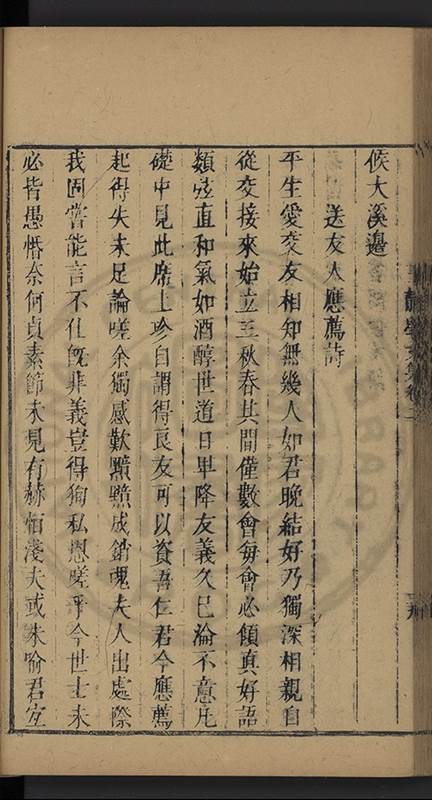 候大溪邊
送友人應薦詩
平生愛交友相知無幾人如君晚結好乃獨深相親自
從交接來始立三秋春其間僅數會每會必傾真好語
類弦直和氣如酒醇世道日卑降友義久已淪不意凡
礎中見此席上珍自謂得良友可以資吾仁君今應薦
起得失未足論嗟余獨感歎黯黯成銷魂夫人出處際
我固嘗能言不仕既非義豈得狥私恩嗟乎今世士未
必皆愚惛奈何貞素節未見有赫怕淺夫或未喻君宜